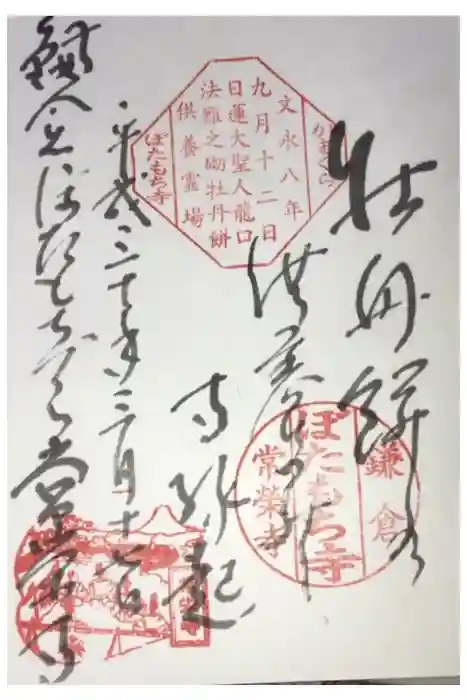 牡丹餅の
供養の
かまくら
文永八年
九月十二日
日蓮大聖人龍口
法難之砌牡丹餅
供養霊場
ぼたもち寺
平成三十年三月十七日
鎌倉ぼたもち寺常栄寺
鎌倉
ぼたもち寺
常榮寺